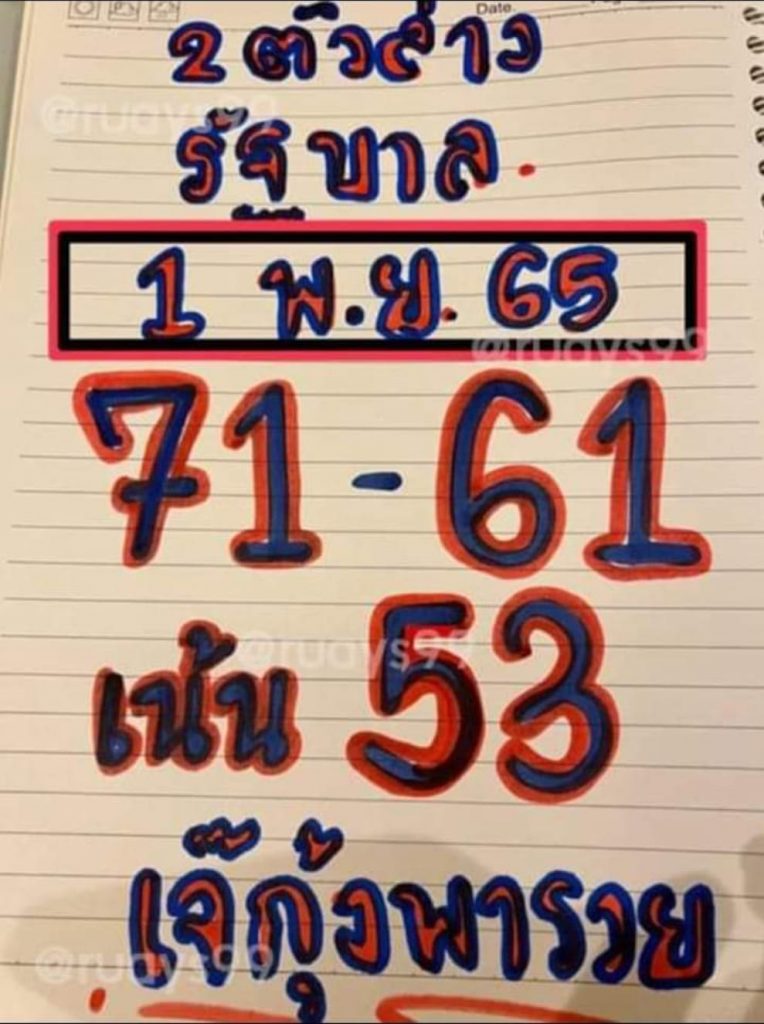 Date.
2 ตัวล่าง
@ruays99
รัฐบาล.
1 พ.ย. 65
@ruays99
71-61
@ruays99
เน้น 53
เจ๊กุ้งพารวย
@ruays99